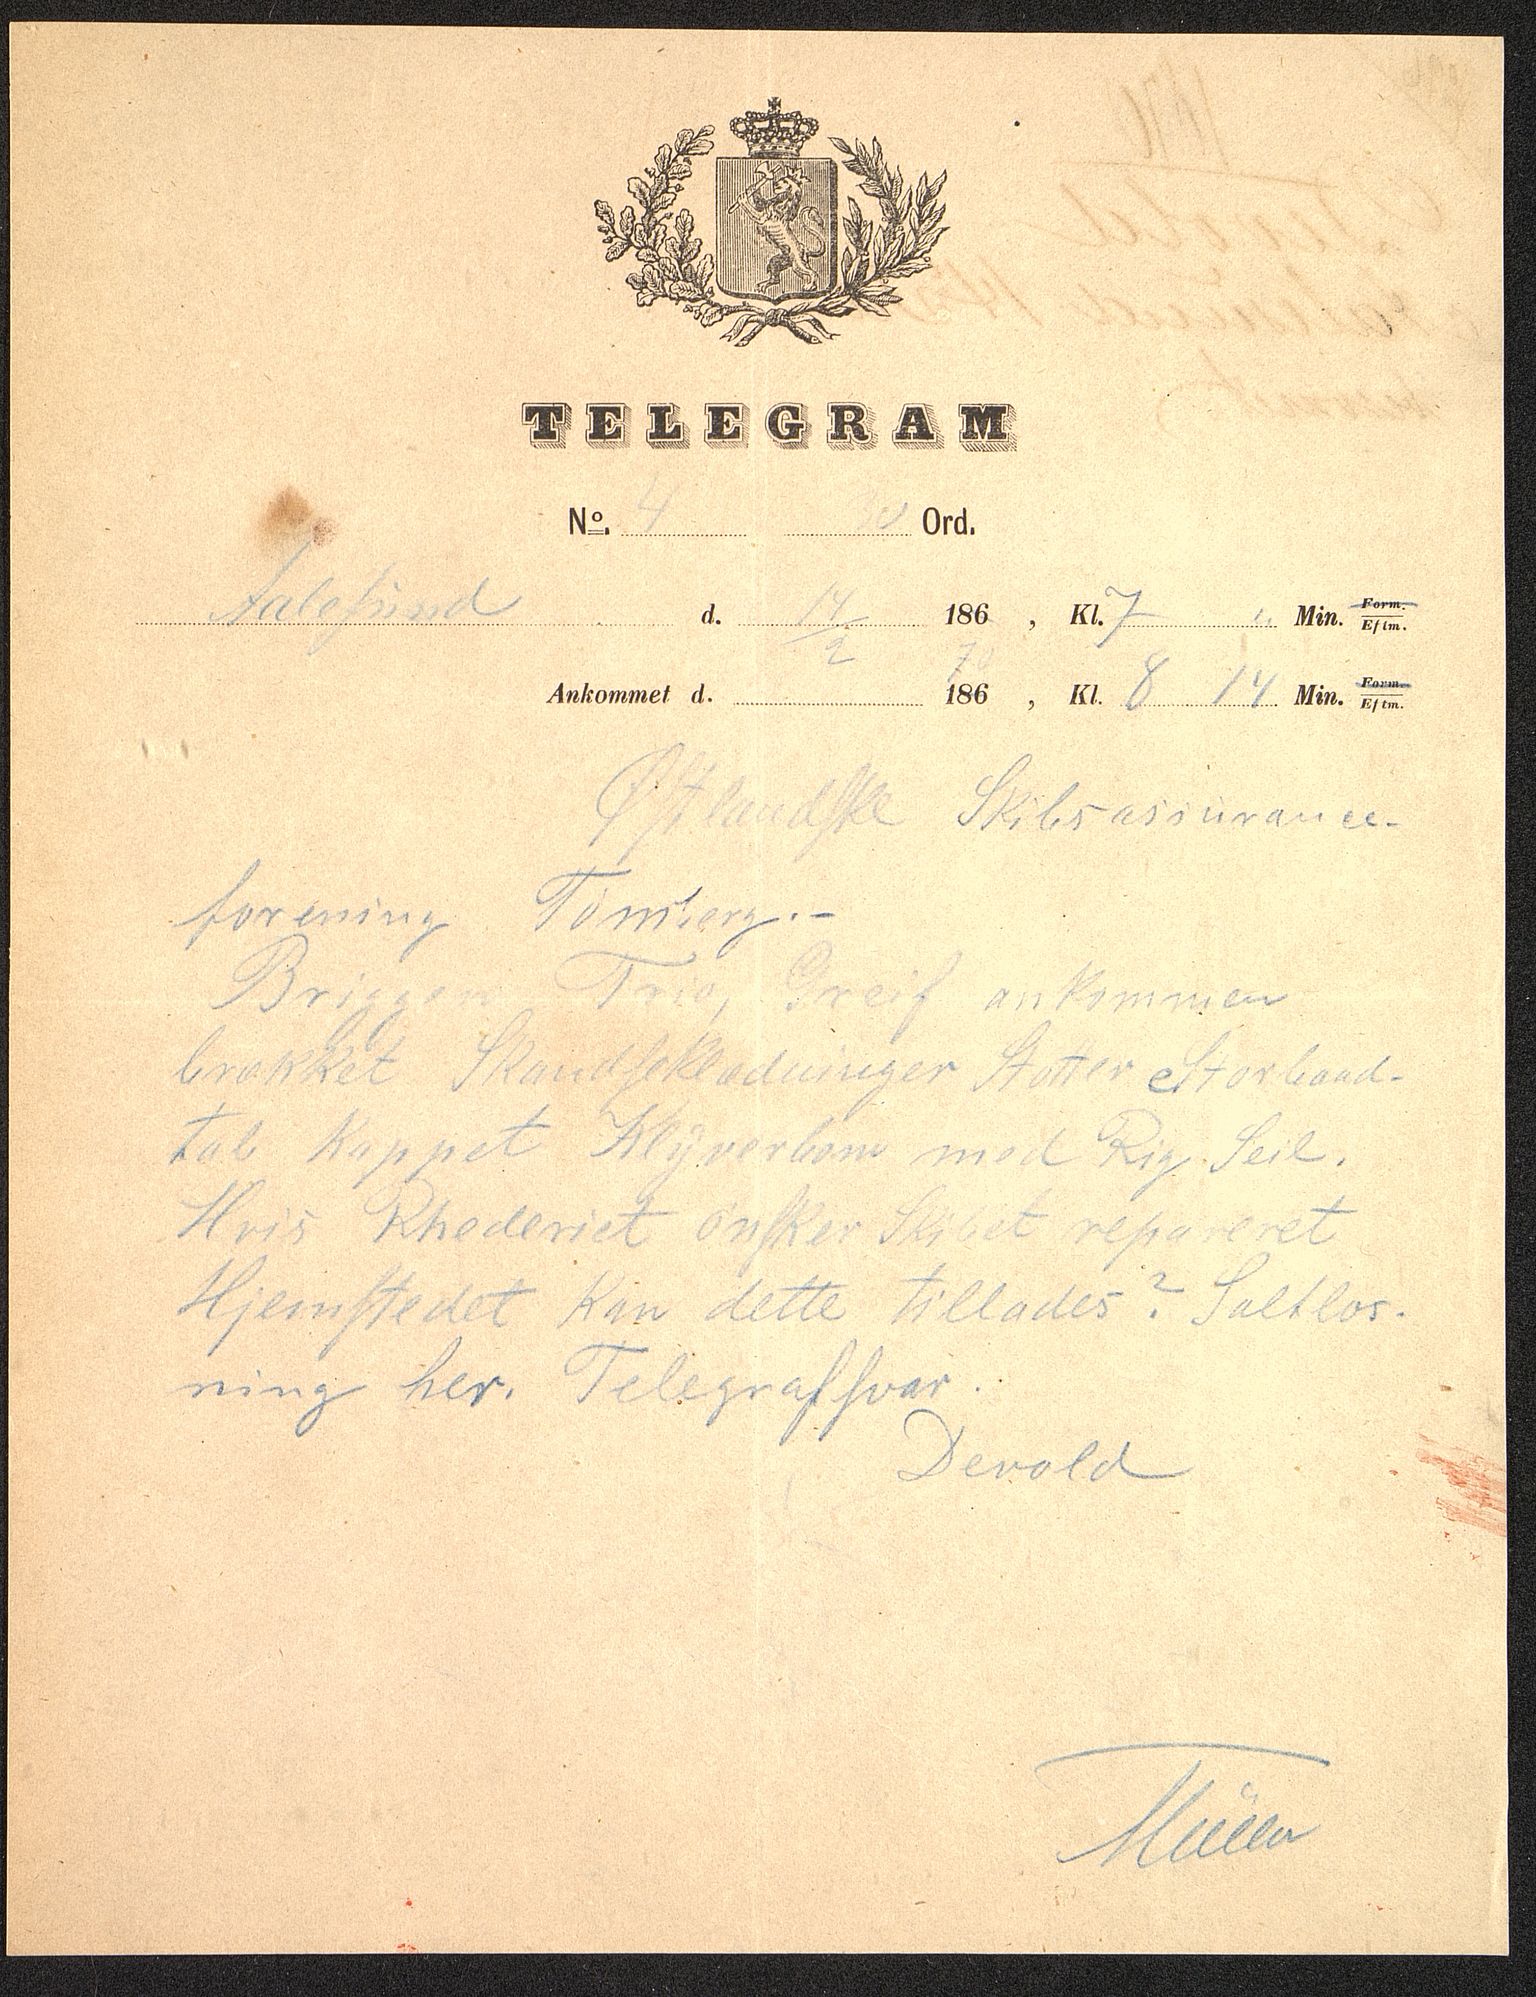 TELEGRAM
No. 4 30 Ord.
Aalesund d. 14/2 186 , Kl. 7 " Min. Form. Eftm.
70
Ankommet d. 186 , Kl. 8 14 Min. Form. Eftm.
Østlandske Skibsassurance-
forening Tønsberg.-
Briggen Trio, Greif ankommen
brækket Skandseklædninger Støtter Storbaad-
tab kappet Klyverbom med Rig Seil.
Hvis Rhederiet ønsker Skibet repareret
Hjemstedet kan dette tillades? Saltlos-
ning her. Telegrafsvar.
Devold
Müller